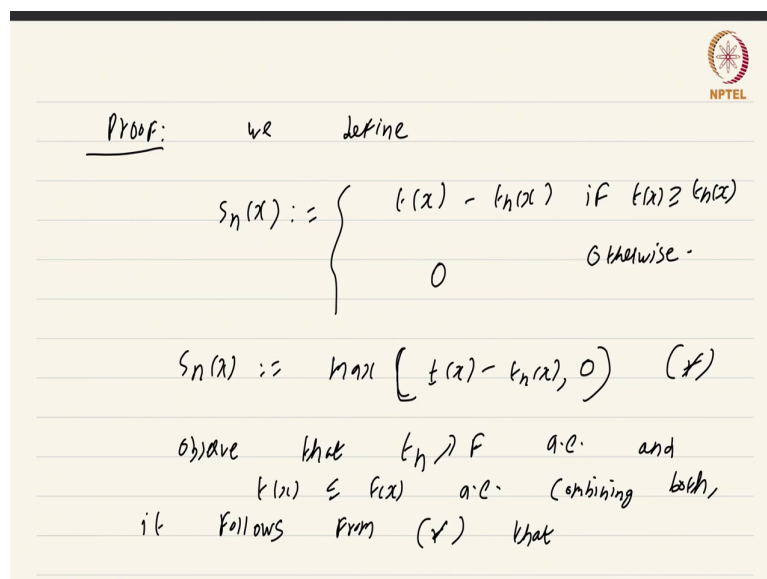 NPTEL
Proof: we define
Sn(x) := { t(x) - tn(x) if t(x) ≥ tn(x)
0 Otherwise.
Sn(x) := max [ t(x) - tn(x), 0 ) (*)
observe that tn ↗ F a.e. and
t(x) ≤ F(x) a.e. Combining both,
it Follows From (*) that